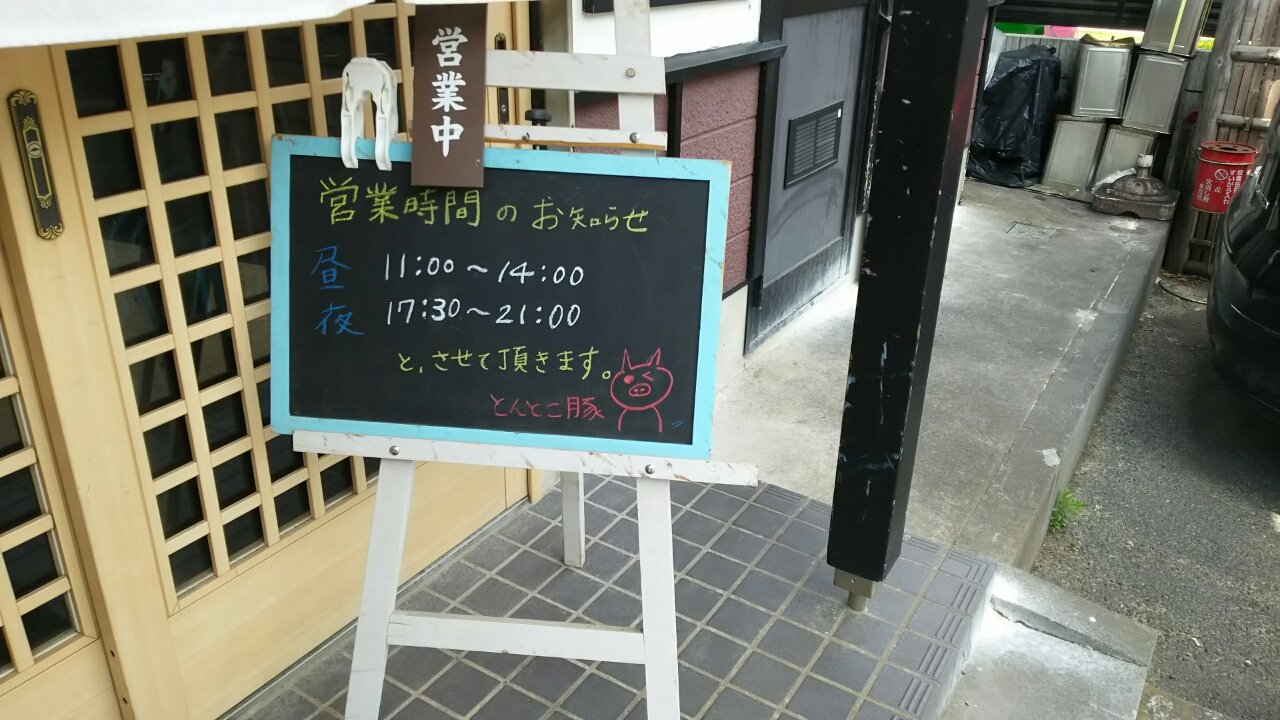 営業中
営業時間のお知らせ
昼 11:00～14:00
夜 17:30～21:00
と,させて頂きます。
とんとこ豚